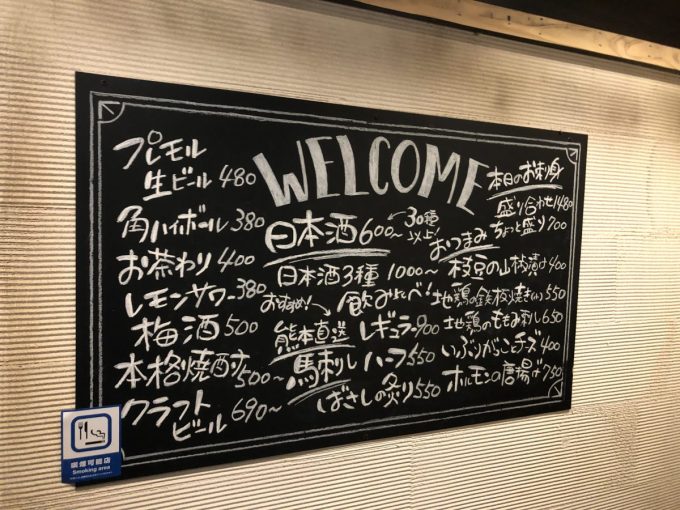 WELCOME
プレモル
生ビール 480
角ハイボール 380
お茶わり 400
レモンサワー 380
梅酒 500
本格焼酎 500〜
クラフト
ビール 690〜
日本酒 600〜
←30種
以上!
日本酒3種 1000〜
おすすめ!
飲みくらべ!
熊本直送
馬刺し
レギュラー 900
ハーフ 550
ばさしの炙り 550
本日のお刺身
盛り合わせ 1480
ちょっと盛り 700
おつまみ
枝豆の山椒漬け 400
地鶏の鉄板焼き 550
地鶏のももみ刺し 650
いぶりがっことチーズ 400
ホルモンの唐揚げ 750
喫煙可能店
Smoking area